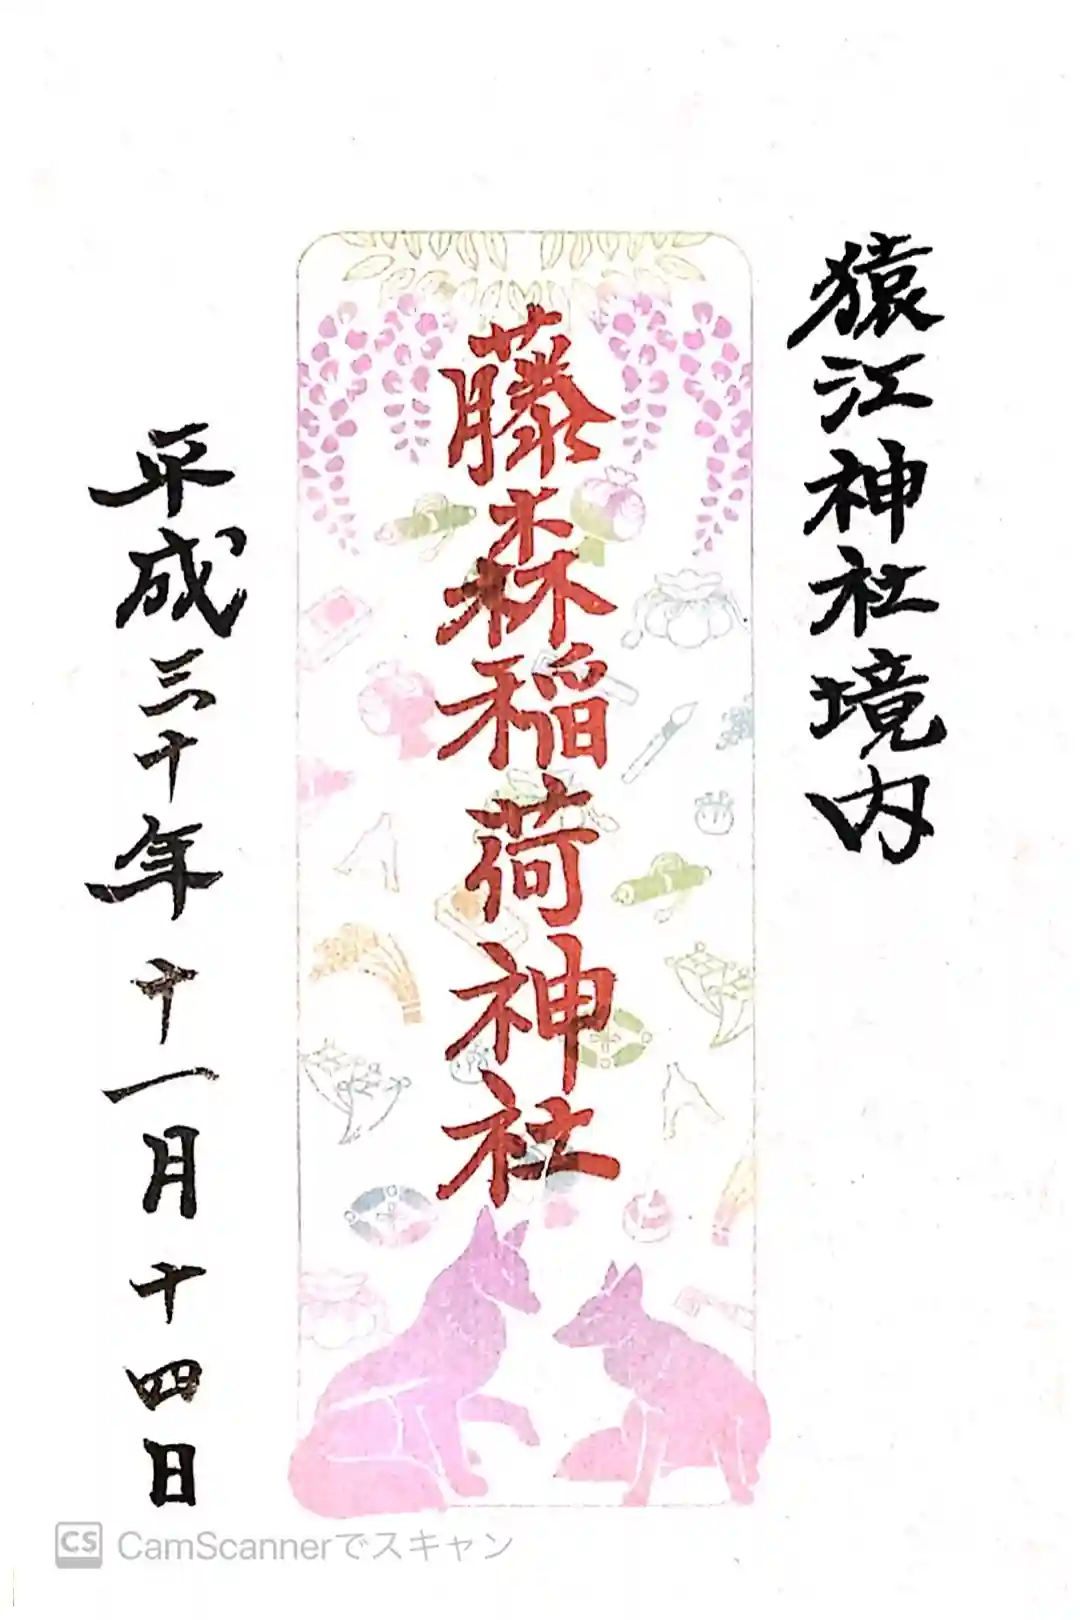 猿江神社境内
藤森稲荷神社
平成三十年十一月十四日
CS CamScannerでスキャン